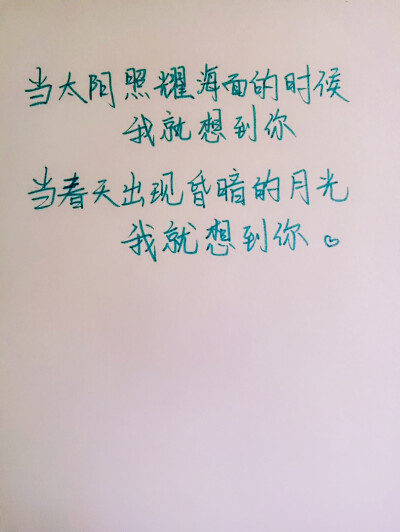 当太阳照耀海面的时候
我就想到你
当春天出现昏暗的月光
我就想到你。